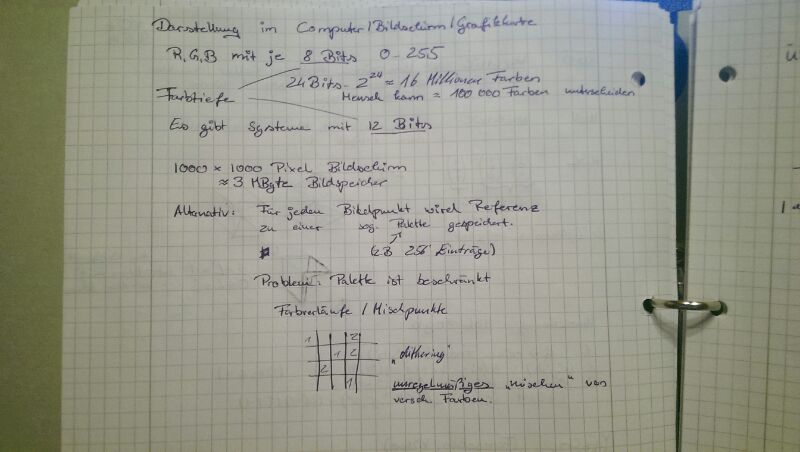 Darstellung im Computer/Bildschirm/Grafikkarte
R, G, B mit je 8 Bits 0-255
24 Bits - 2^24 ≈ 16 Millionen Farben
Mensch kann ≈ 100 000 Farben unterscheiden
Farbtiefe
Es gibt Systeme mit 12 Bits
1000 × 1000 Pixel Bildschirm
≈ 3 MByte Bildspeicher
Alternativ: Für jeden Bildpunkt wird Referenz
zu einer sog. Palette gespeichert.
(zB 256 Einträge)
Problem: Palette ist beschränkt
Farbverläufe / Mischpunkte
1 2
1 2
2
1
„dithering"
unregelmäßiges „mischen" von
versch. Farben.